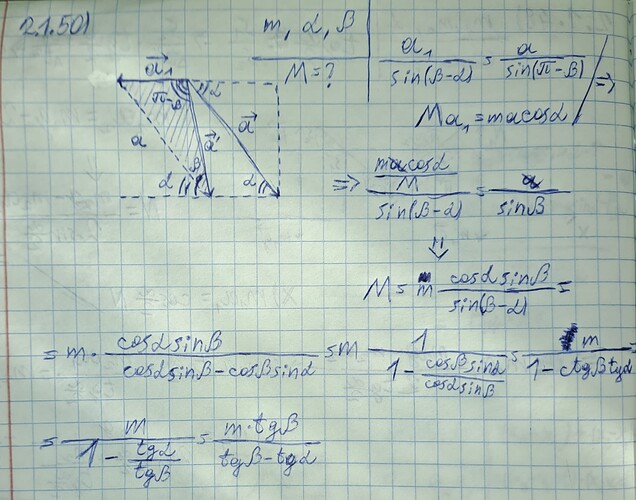 2.1.50)
m, α, β
M = ?
a₁/sin(β-α) = a/sin(π-β) ⇒
Ma₁ = macosα
a₁ π-β α
a a' a
β
α α
⇒ (macosα/M)/sin(β-α) = a/sinβ
⇓
M = m cosα sinβ/sin(β-α) =
= m · cosα sinβ/(cosα sinβ - cosβ sinα) = m 1/(1 - cosβ sinα/cosα sinβ) = m/(1 - ctgβ tgα) =
= m/(1 - tgα/tgβ) = m·tgβ/(tgβ - tgα)